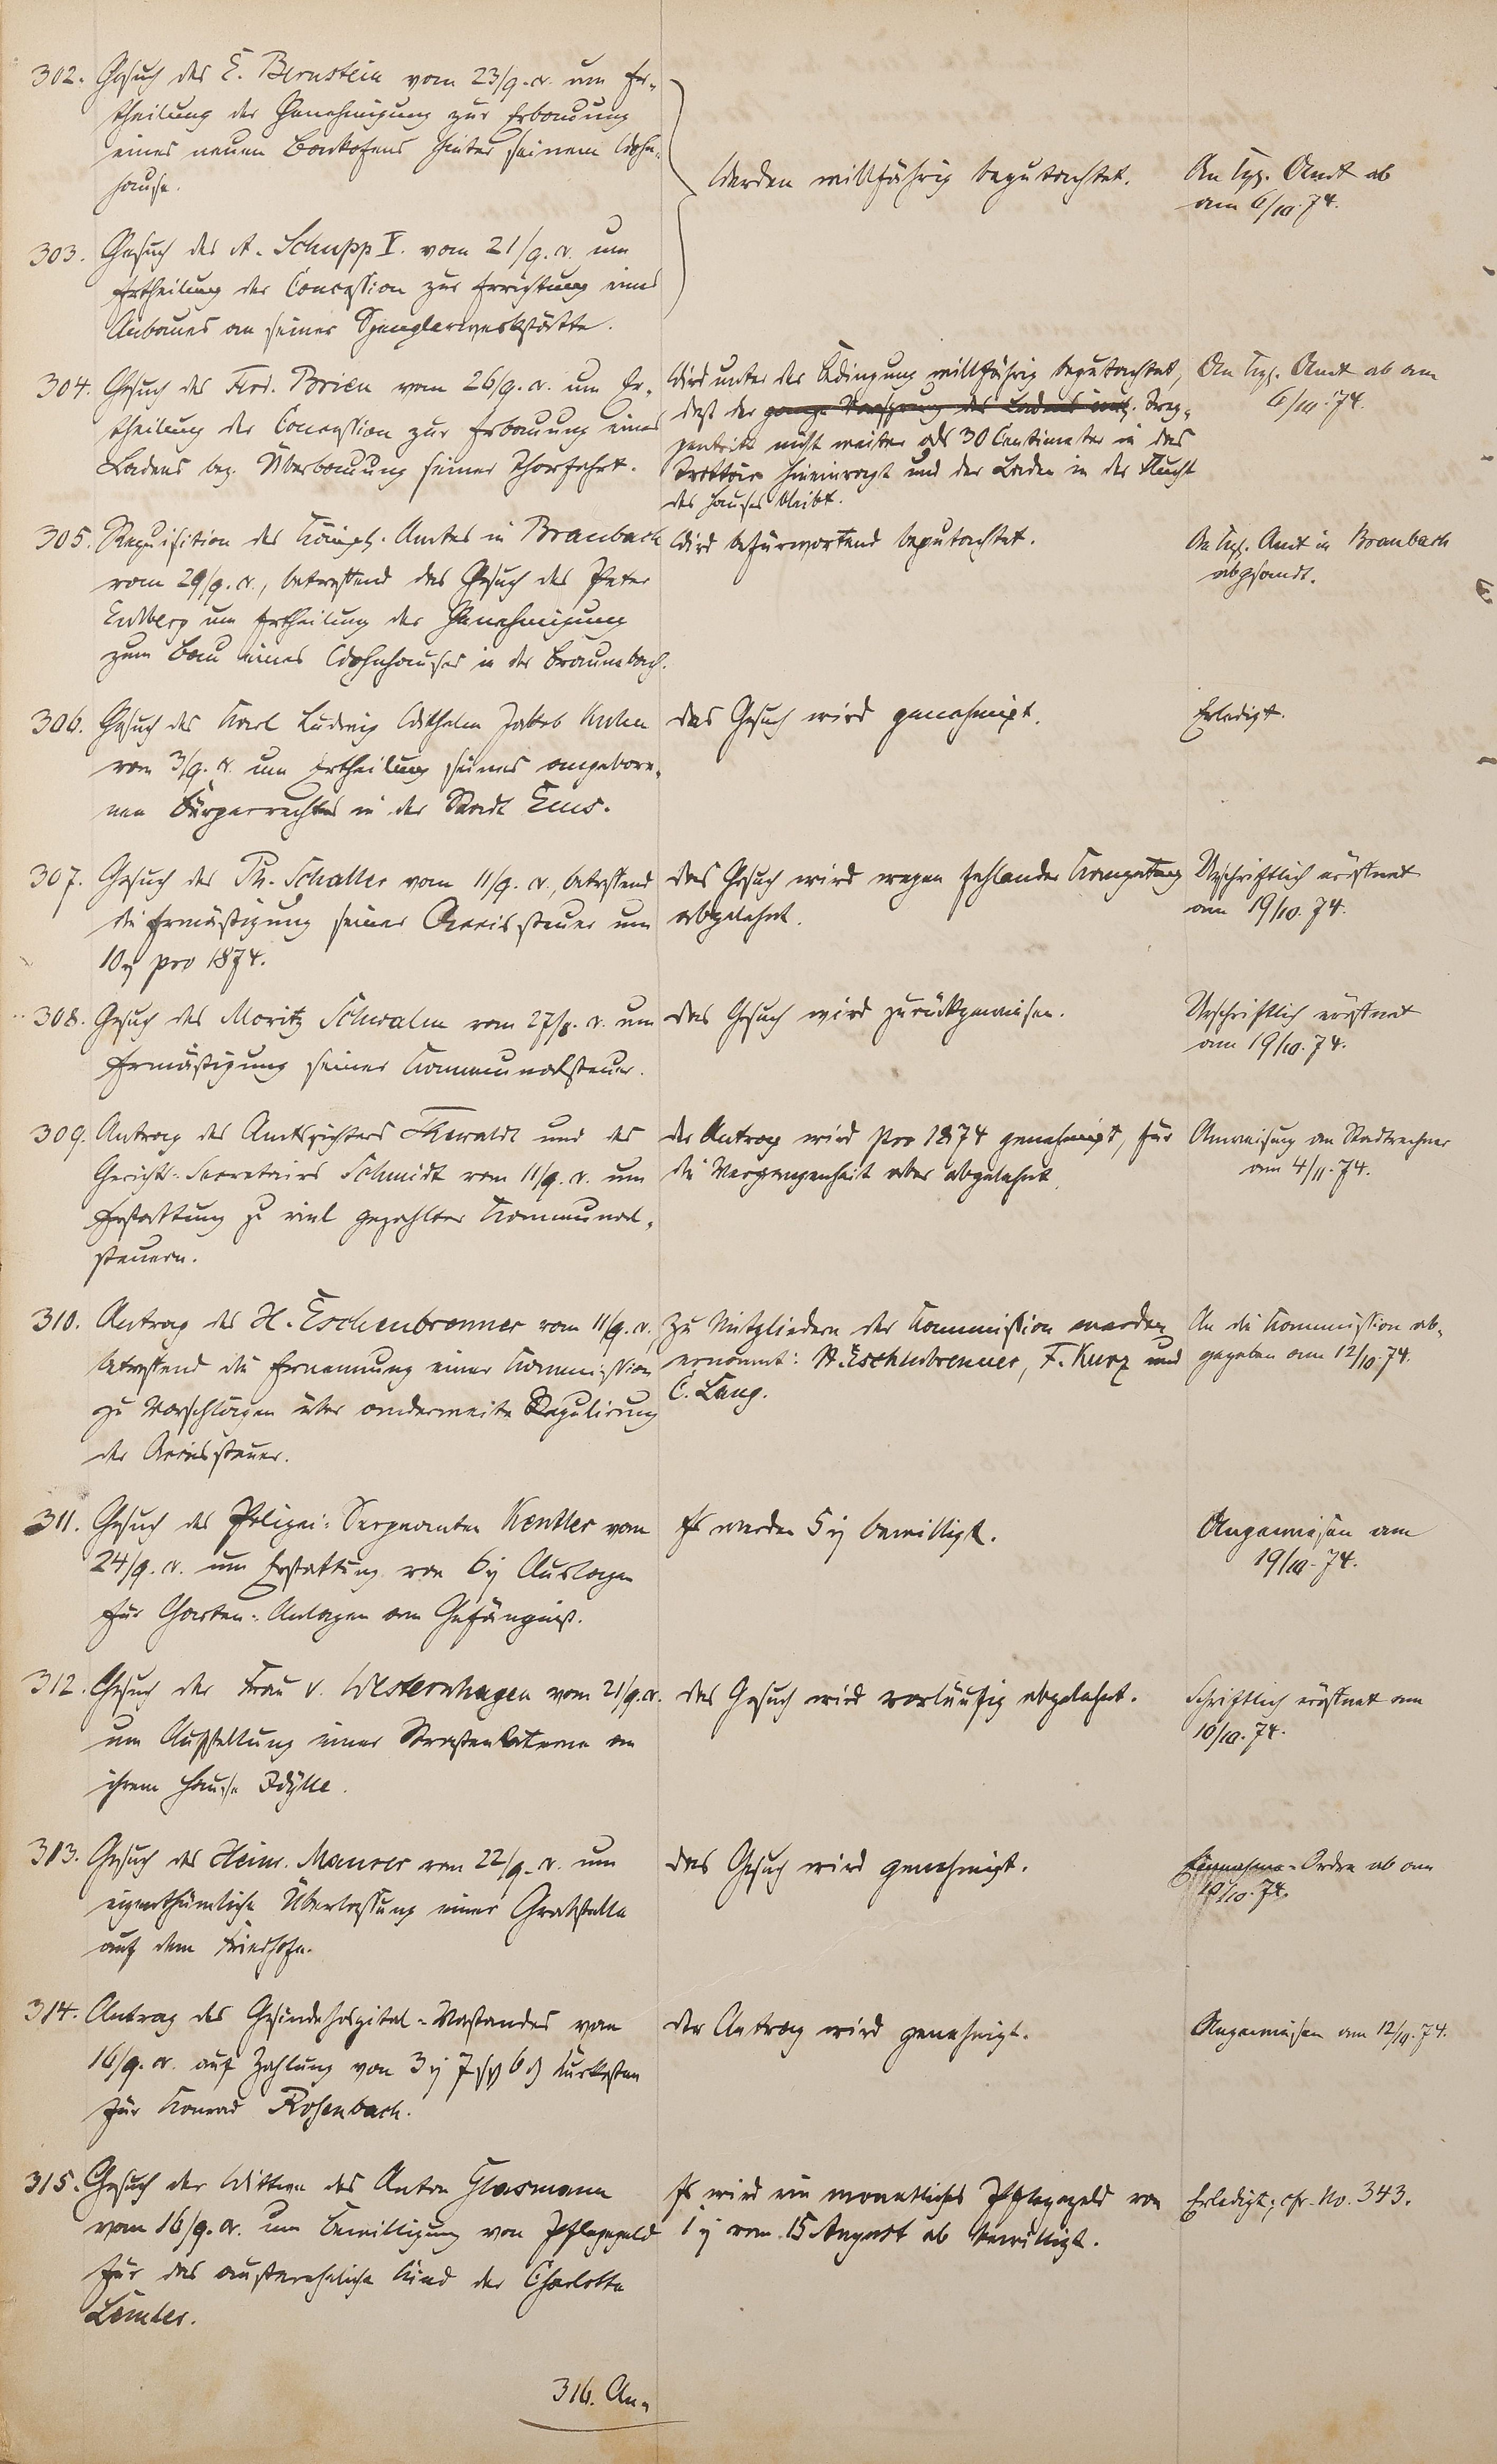 302. Gesuch des E. Bernstein vom 23/9. cr. um Er-
theilung der Genehmigung zur Erbauung
eines neuen Backofens hinter seinem Wohn-
hause.
Werden willfährig begutachtet.
An Kgl. Amt ab
am 6/10. 74.
303. Gesuch des A. Schupp V. vom 21/9. cr. um
Ertheilung der Concession zur Errichtung eines
Anbaues an seiner Spenglerwerkstätte.
304. Gesuch des Ferd. Brien vom 26/9. cr. um Er-
theilung der Concession zur Erbauung eines
Ladens bez. Überbauung seiner Thorfahrt.
Wird unter der Bedingung willfährig begutachtet,
daß der ganze Vorsprung des Ladens incl. Trep-
pentritt nicht weiter als 30 Centimeter in das
Trottoir hineinragt und der Laden in der Flucht
des Hauses bleibt.
An Kgl. Amt ab am
6/10. 74.
305. Requisition des Königl. Amtes in Braubach
vom 29/9. cr., betreffend das Gesuch des Peter
um Ertheilung der Genehmigung
zum Bau eines Wohnhauses in der Braunebach.
Wird befürwortend begutachtet.
An Kgl. Amt in Braubach
abgesandt.
306. Gesuch des Karl Ludwig Wilhelm Jakob Kuhn
vom 3/9. cr. um Ertheilung seines angebore-
nen Bürgerrechtes in der Stadt Ems.
Das Gesuch wird genehmigt.
Erledigt.
307. Gesuch des Ph. Schaller vom 11/9. cr., betreffend
die Ermäßigung seiner Accissteuer um
10 pro 1874.
Das Gesuch wird wegen fehlender Kompetenz
abgelehnt.
Urschriftlich eröffnet
am 19/10. 74.
308. Gesuch des Moritz Schwalm vom 27/8. cr. um
Ermäßigung seiner Kommunalsteuer.
Das Gesuch wird zurückgewiesen.
Urschriftlich eröffnet
am 19/10. 74.
309. Antrag des Amtsrichters Thewaldt und des
Gerichts-Secretairs Schmidt vom 11/9. cr. um
Erstattung zu viel gezahlter Kommunal-
steuern.
Der Antrag wird pro 1874 genehmigt, für
die Vergangenheit aber abgelehnt.
Anweisung an Stadtrechner
am 4/11. 74.
310. Antrag des H. Eschenbrenner vom 11/9. cr.
betreffend die Ernennung einer Kommission
zu Vorschlägen über anderweite Regulirung
der Accissteuer.
Zu Mitgliedern der Kommission werden
ernannt: H. Eschenbrenner, F. Kurz und
C. Lang.
An die Kommission ab-
gegeben am 12/10. 74.
311. Gesuch des Polizei-Sergeanten Kentler vom
24/9. cr. um Erstattung von 6 Auslagen
für Garten-Anlagen am Gefängniß.
Es werden 5 bewilligt.
Angewiesen am
19/10. 74.
312. Gesuch der Frau v. Westernhagen vom 21/9. cr.
um Aufstellung einer Straßenlaterne an
ihrem Hause Idylle.
Das Gesuch wird vorläufig abgelehnt.
Schriftlich eröffnet am
10/10. 74.
313. Gesuch des Heinr. Maurer vom 22/9. cr. um
eigenthümliche Überlassung einer Grabstelle
auf dem Friedhofe.
Das Gesuch wird genehmigt.
Einnahme-Ordre ab am
19/10. 74.
314. Antrag des Gesindehospital-Vorstandes vom
16/9. cr. auf Zahlung von 3 7 6 Kurkosten
für Konrad Rosenbach.
Der Antrag wird genehmigt.
Angewiesen am 12/10. 74.
315. Gesuch der Wittwe des Anton Glasmann
vom 16/9. cr. um Bewilligung von Pflegegeld
für das außereheliche Kind der Charlotte
Es wird ein monatliches Pflegegeld von
1 vom 15 August ab bewilligt.
Erledigt; cfr. No. 343.
316. An-